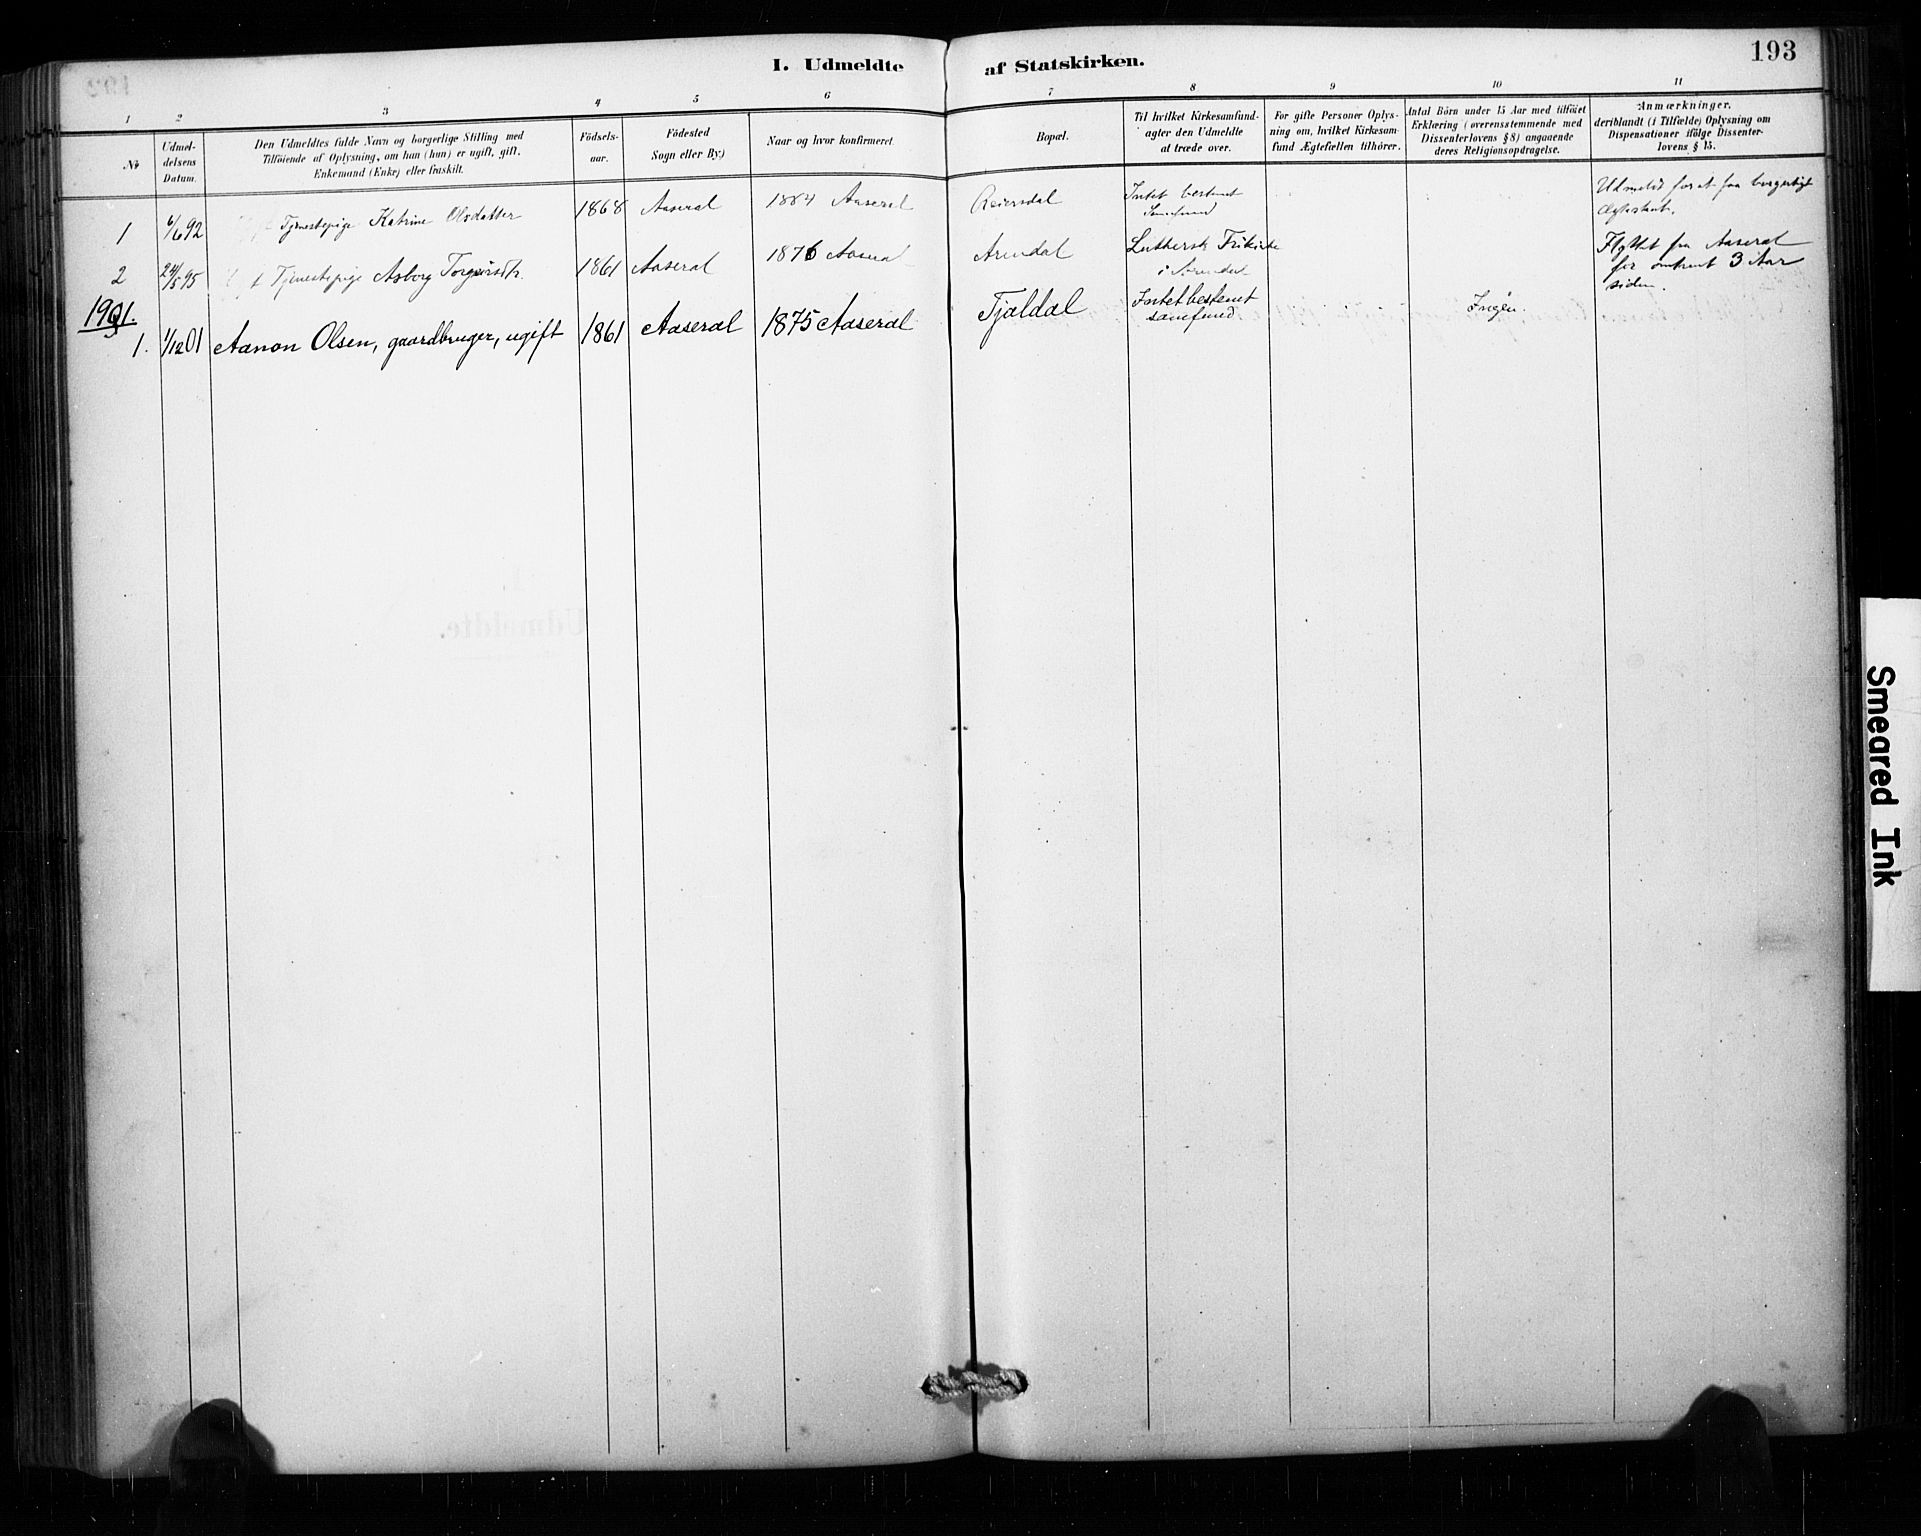 I. Udmeldte af Statskirken.
193
1 2 3 4 5 6 7 8 9 10 11
No
Udmel-
delsens
Datum.
Den Udmeldtes fulde Navn og borgerlige Stilling med
Tilföiende af Oplysning, om han (hun) er ugift, gift,
Enkemand (Enke) eller fraskilt.
Födsels-
aar.
Födested
Sogn eller By.)
Naar og hvor konfirmeret.
Bopæl.
Til hvilket Kirkesamfund-
agter den Udmeldte
at træde over.
For gifte Personer Oplys-
ning om, hvilket Kirkesam-
fund Ægtefællen tilhörer.
Antal Börn under 15 Aar med tilföiet
Erklæring (overensstemmende med
Dissenterlovens § 8) angaaende
deres Religionsopdragelse.
Anmærkninger,
deriblandt (i Tilfælde) Oplysning om
Dispensationer ifölge Dissenter-
lovens § 15.
1 6/6 92 Tjenestepige Katrine Olsdatter 1868 Aaseral 1884 Aaseral Reiersdal Intet bestemt
Samfund
Udmeldt for at faa borgerligt
Ægteskab.
2 24/5 95 Tjenestepige Asborg Torgeirsdtr. 1861 Aaseral 1876 Aaseral Arendal Luthersk Frikirke
i Arendal
Flyttet fra Aaseral
for omtrent 3 Aar
siden.
1901.
1. 1/12 01 Aanon Olsen, gaardbruger, ugift 1861 Aaseral 1875 Aaseral Tjaldal Intet bestemt
samfund
Ingen.
Udmeldte.
Smeared Ink